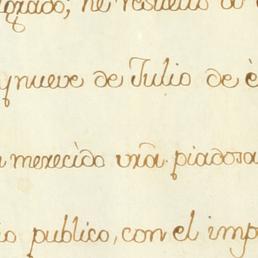 he resuelto
ynueve de Julio de
merecido vrã. piadosa
publico, con el imp